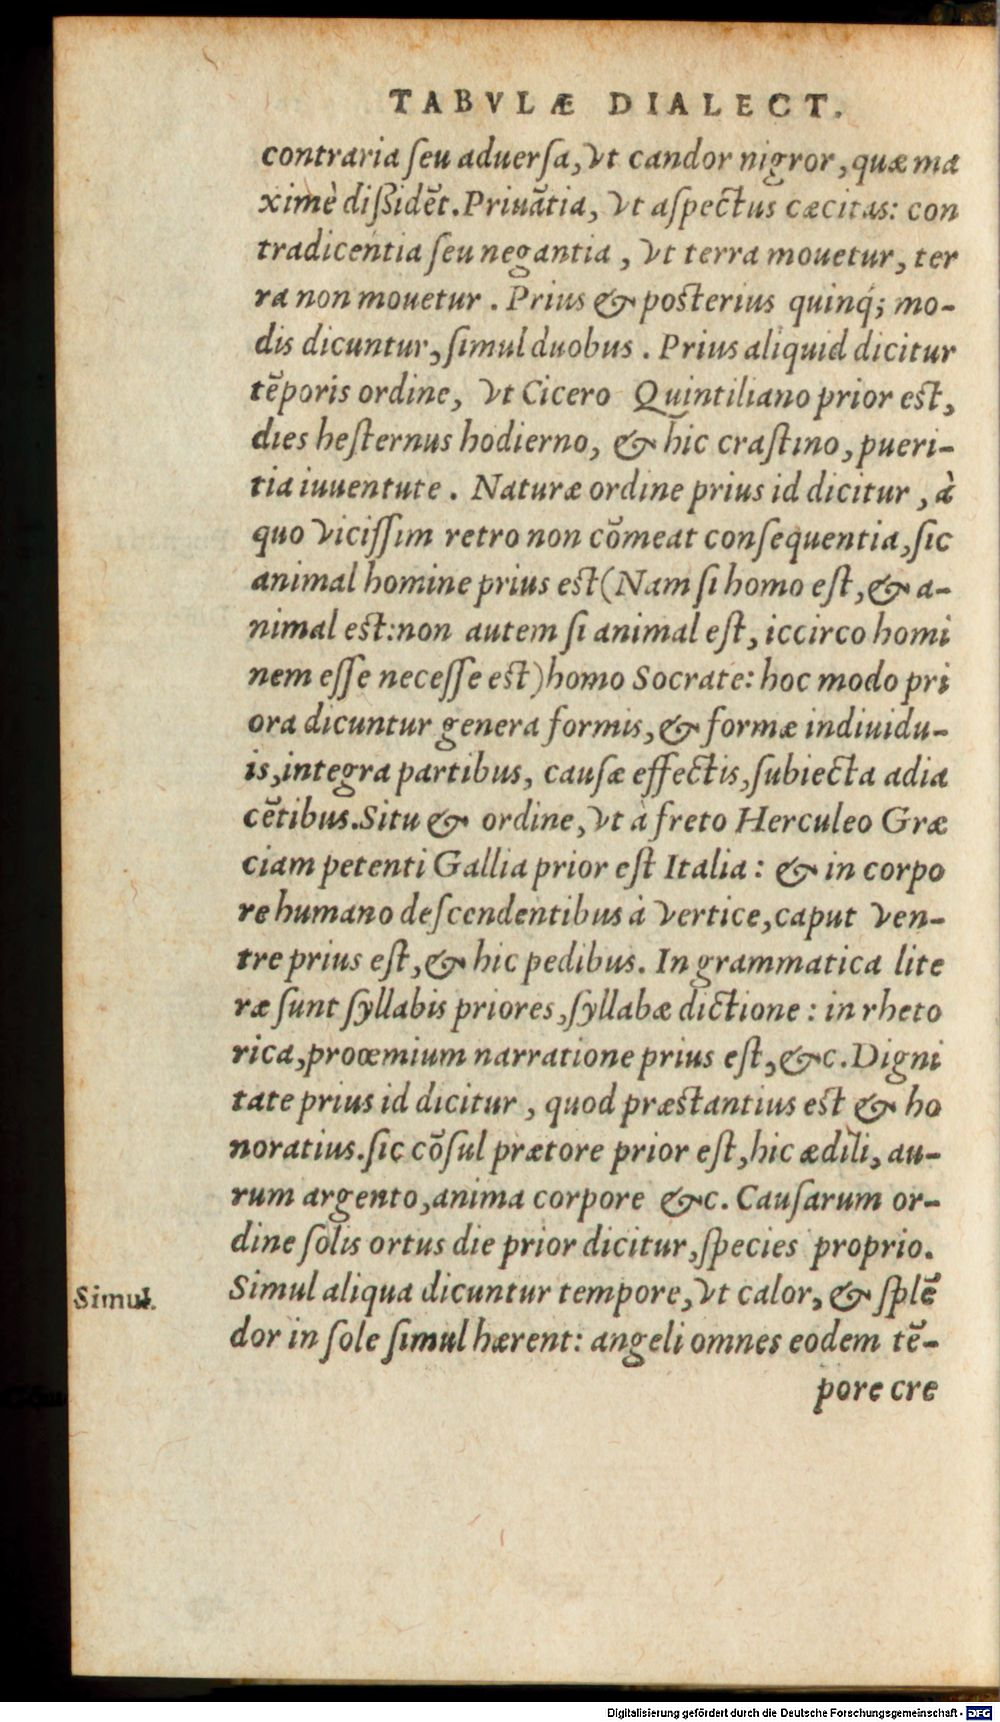 TABVLÆ DIALECT.
contraria ſeu aduerſa, vt candor nigror, quæ ma
ximè dißidēt. Priuātia, vt aſpectus cæcitas: con
tradicentia ſeu negantia, vt terra mouetur, ter
ra non mouetur. Prius & poſterius quinq́; mo-
dis dicuntur, ſimul duobus. Prius aliquid dicitur
tēporis ordine, vt Cicero Quintiliano prior eſt,
dies heſternus hodierno, & hic craſtino, pueri-
tia iuuentute. Naturæ ordine prius id dicitur, à
quo viciſſim retro non cōmeat conſequentia, ſic
animal homine prius eſt (Nam ſi homo eſt, & a-
nimal eſt: non autem ſi animal eſt, iccirco homi
nem eſſe neceſſe eſt) homo Socrate: hoc modo pri
ora dicuntur genera formis, & formæ indiuidu-
is, integra partibus, cauſæ effectis, ſubiecta adia
cētibus. Situ & ordine, vt à freto Herculeo Græ
ciam petenti Gallia prior eſt Italia: & in corpo
re humano deſcendentibus à vertice, caput ven-
tre prius eſt, & hic pedibus. In grammatica lite
ræ ſunt ſyllabis priores, ſyllabæ dictione: in rheto
rica, proœmium narratione prius eſt, &c. Digni
tate prius id dicitur, quod præſtantius eſt & ho
noratius. ſic cōſul prætore prior eſt, hic ædili, au-
rum argento, anima corpore &c. Cauſarum or-
dine ſolis ortus die prior dicitur, ſpecies proprio.
Simul.
Simul aliqua dicuntur tempore, vt calor, & ſplē
dor in ſole ſimul hærent: angeli omnes eodem tē-
pore cre
Digitalisierung gefördert durch die Deutsche Forschungsgemeinschaft - DFG